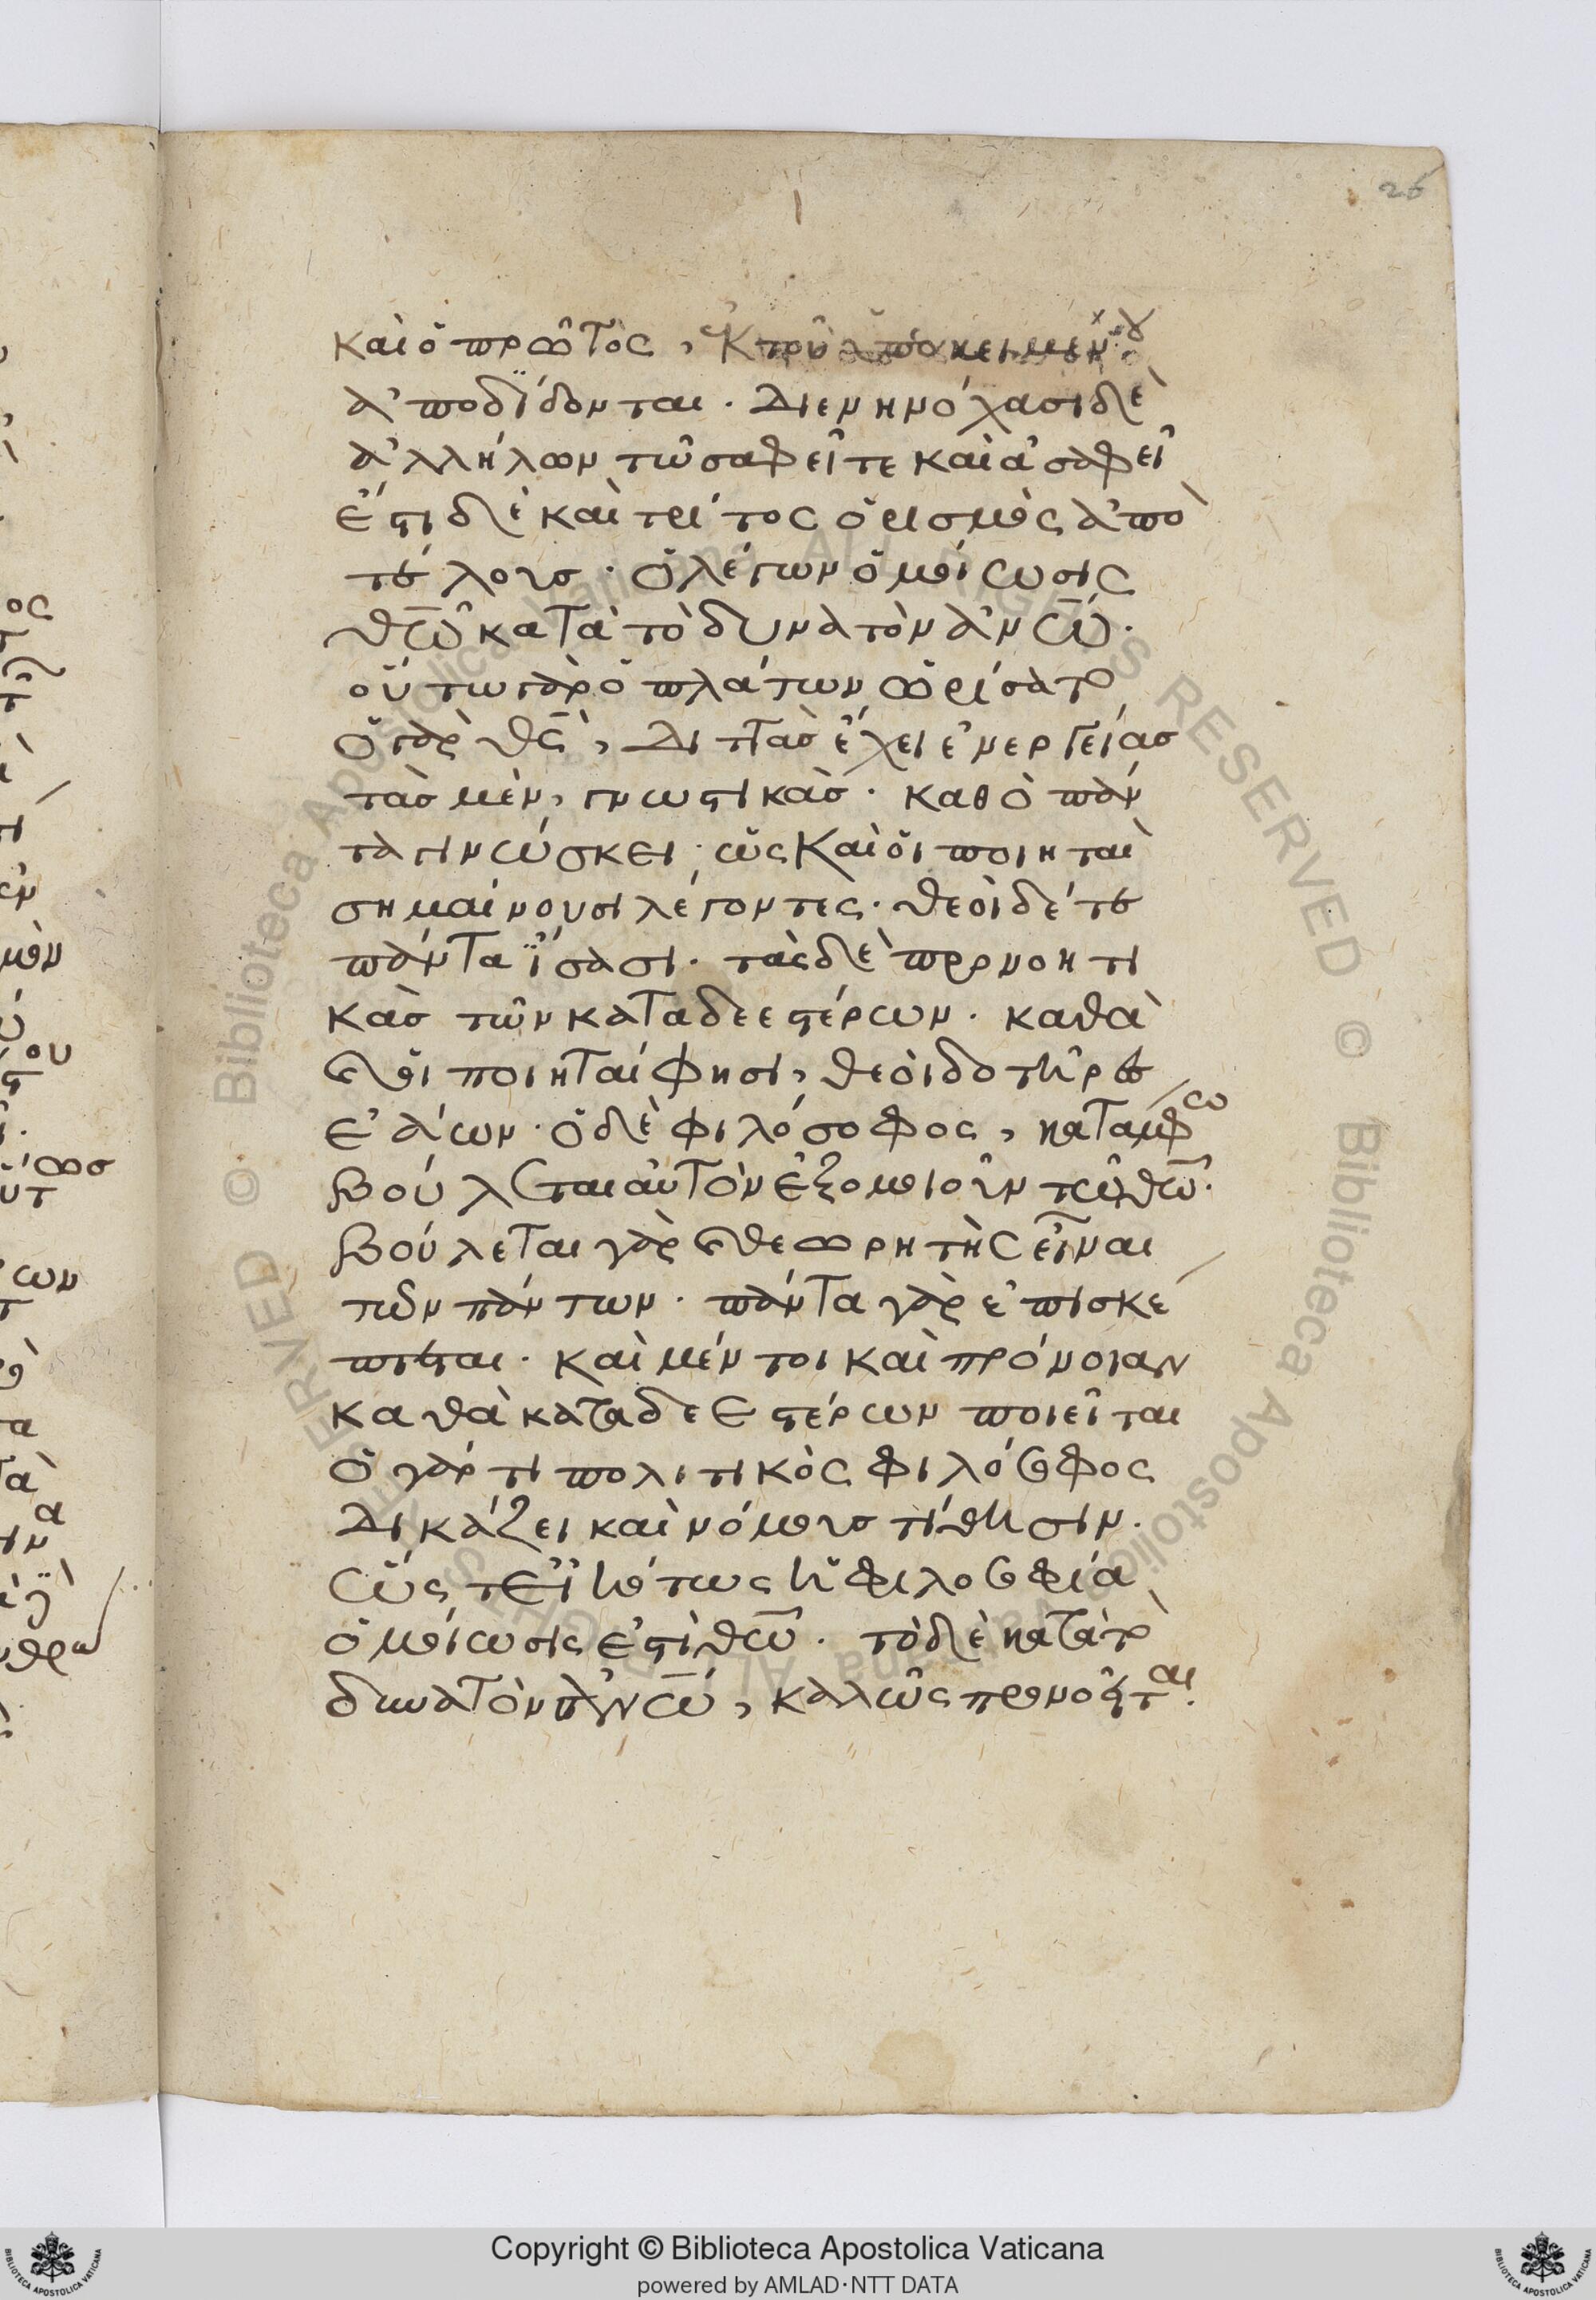 26
καὶ ὁ πρῶτος, ἐκ τοῦ ὑποκειμένου
ἀποδίδονται. Διενηνόχασι δὲ
ἀλλήλων τῶ σαφεῖ τε καὶ ἀσαφεῖ
ἔστι δὲ καὶ τρίτος ὁρισμὸς ἀπὸ
τέλους. ὁ λέγων ὁμοίωσις
θω̅ κατὰ τὸ δυνατὸν ἀνω̅.
οὕτω γὰρ ὁ πλάτων ὡρίσατο
ὁ γὰρ θς̅, Διττὰς ἔχει ἐνεργείας
τὰς μὲν, γνωστικὰς. καθὸ πάν
τα γινώσκει. ὡς καὶ οἱ ποιηταὶ
σημαίνουσι λέγοντες. θεοὶ δέ τε
πάντα ἴσασι. τὰς δὲ προνοητι
κὰς τῶν καταδεεστέρων. καθὰ
οἱ ποιηταί φησι, θεοὶ δοτῆρες
ἐάων. ὁ δὲ φιλόσοφος, κατάμφω
βούλεται αὐτὸν ἐξομοιοῦν τῶ θω̅.
βούλεται γὰρ θεωρητὴς εἶναι
τῶν πάντων. πάντα γὰρ ἐπισκέ
πτεται. καὶ μέν τοι καὶ πρόνοιαν
καθὰ καταδεεστέρων ποιεῖται
ὁ γάρ τι πολιτικὸς φιλόσοφος
Δικάζει καὶ νόμους τίθησιν.
ὥστε εἰκότως ἡ φιλοσοφία
ὁμοίωσις ἐστὶ θω̅. τὸ δὲ κατὰ τὸ
δυνατὸν ἀνω̅, καλῶς
Copyright © Biblioteca Apostolica Vaticana
powered by AMLAD·NTT DATA